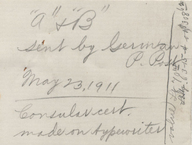 "A" & "B"
sent by German
P. Post
May 23, 1911
Consular cert.
made on typewriter
value